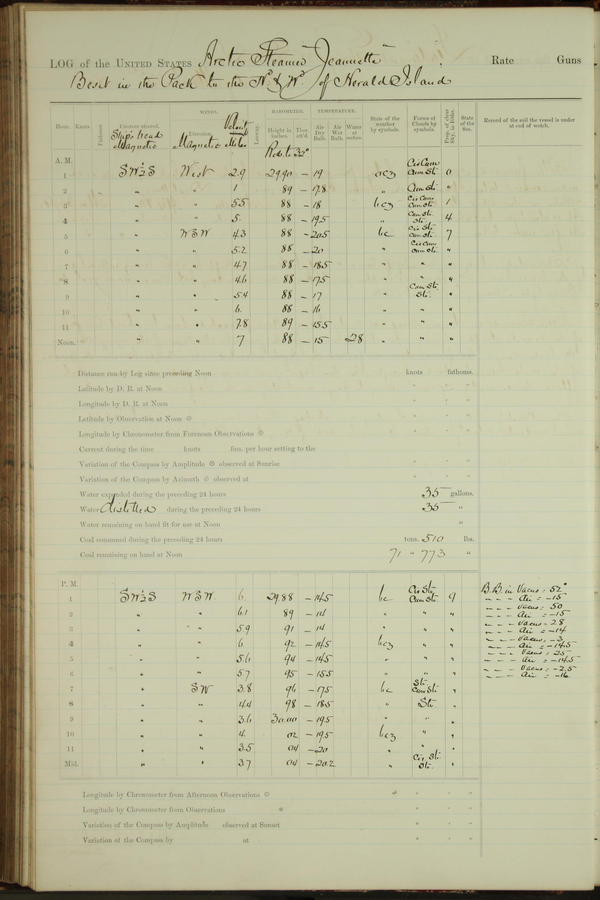 LOG of the UNITED STATES Arctic Steamer Jeannette Rate Guns
Beset in the Pack to the Nd & Wd of Herald Island
WINDS. BAROMETER. TEMPERATURE.
Hour. Knots Fathoms Courses steered. Direction. Velocity Miles Leeway. Height in inches. Ther. att'd. Air Dry Bulb. Air Wet Bulb. Water at surface. State of the weather by symbols. Forms of Clouds by symbols. Prop. of clear Sky, in 10ths. State of the Sea. Record of the sail the vessel is under at end of watch.
Ship's head Magnetic Magnetic
A. M.
Cir Cum
1 SW½S West 2.9 29.90 -19 Cum St. 0
2 " " 1 89 -17.8 " Cum St. "
3 " " 5.5 88 -18 bcz Cir Cum Cum St. 1
4 " " 5. 88 -19.5 " Cum St. Str. 4
5 " WSW 4.3 88 -20.5 bc Cir St. Cum St. 7
6 " " 5.2 88 -20 " Cir Cum Cum St. "
7 " " 4.7 88 -18.5 " " "
8 " " 4.6 88 -17.5 " " "
9 " " 5.4 88 -17 " Cum St. Str. "
10 " " 6. 88 -16 " " "
11 " " 7.8 89 -15.5 " " "
Noon. " " 7 88 -15 28 " " "
Distance run by Log since preceding Noon knots fathoms.
Latitude by D. R. at Noon
Longitude by D. R. at Noon
Latitude by Observation at Noon
Longitude by Chronometer from Forenoon Observations
Current during the time knots fms. per hour setting to the
Variation of the Compass by Amplitude observed at Sunrise
Variation of the Compass by Azimuth observed at
Water expended during the preceding 24 hours 35 gallons.
Water distilled during the preceding 24 hours 35 "
Water remaining on hand fit for use at Noon "
Coal consumed during the preceding 24 hours tons. 510 lbs.
Coal remaining on hand at Noon 71 " 773 "
P. M.
1 SW½S WSW 6. 29.88 -14.5 bc Cir St. Cum St. 9
2 " " 6.1 89 -14 " " "
3 " " 5.9 91 -14 " " "
4 " " 6. 92 -14.5 bcz " "
5 " " 5.6 94 -14.5 " " "
6 " " 5.7 95 -15.5 " " "
7 " SW 3.8 96 -17.5 bc Str. Cum St. "
8 " " 4.4 98 -18.5 " Str. "
9 " " 3.6 30.00 -19.5 " " "
10 " " 4. 02 -19.5 bcz " "
11 " " 3.5 04 -20 " " "
Mid. " " 3.7 04 -20.2 " Cir St. Str. "
B.B. in Vacuo = 52°
" " " Air = -15
" " " Vacuo = 50
" " " Air = -15
" " " Vacuo = 28
" " " Air = -14
" " " Vacuo = -3
" " " Air = -14.5
" " " Vacuo = 25
" " " Air = -14.5
" " " Vacuo = -2.5
" " " Air = -16
Longitude by Chronometer from Afternoon Observations
Longitude by Chronometer from Observations
Variation of the Compass by Amplitude observed at Sunset
Variation of the Compass by at